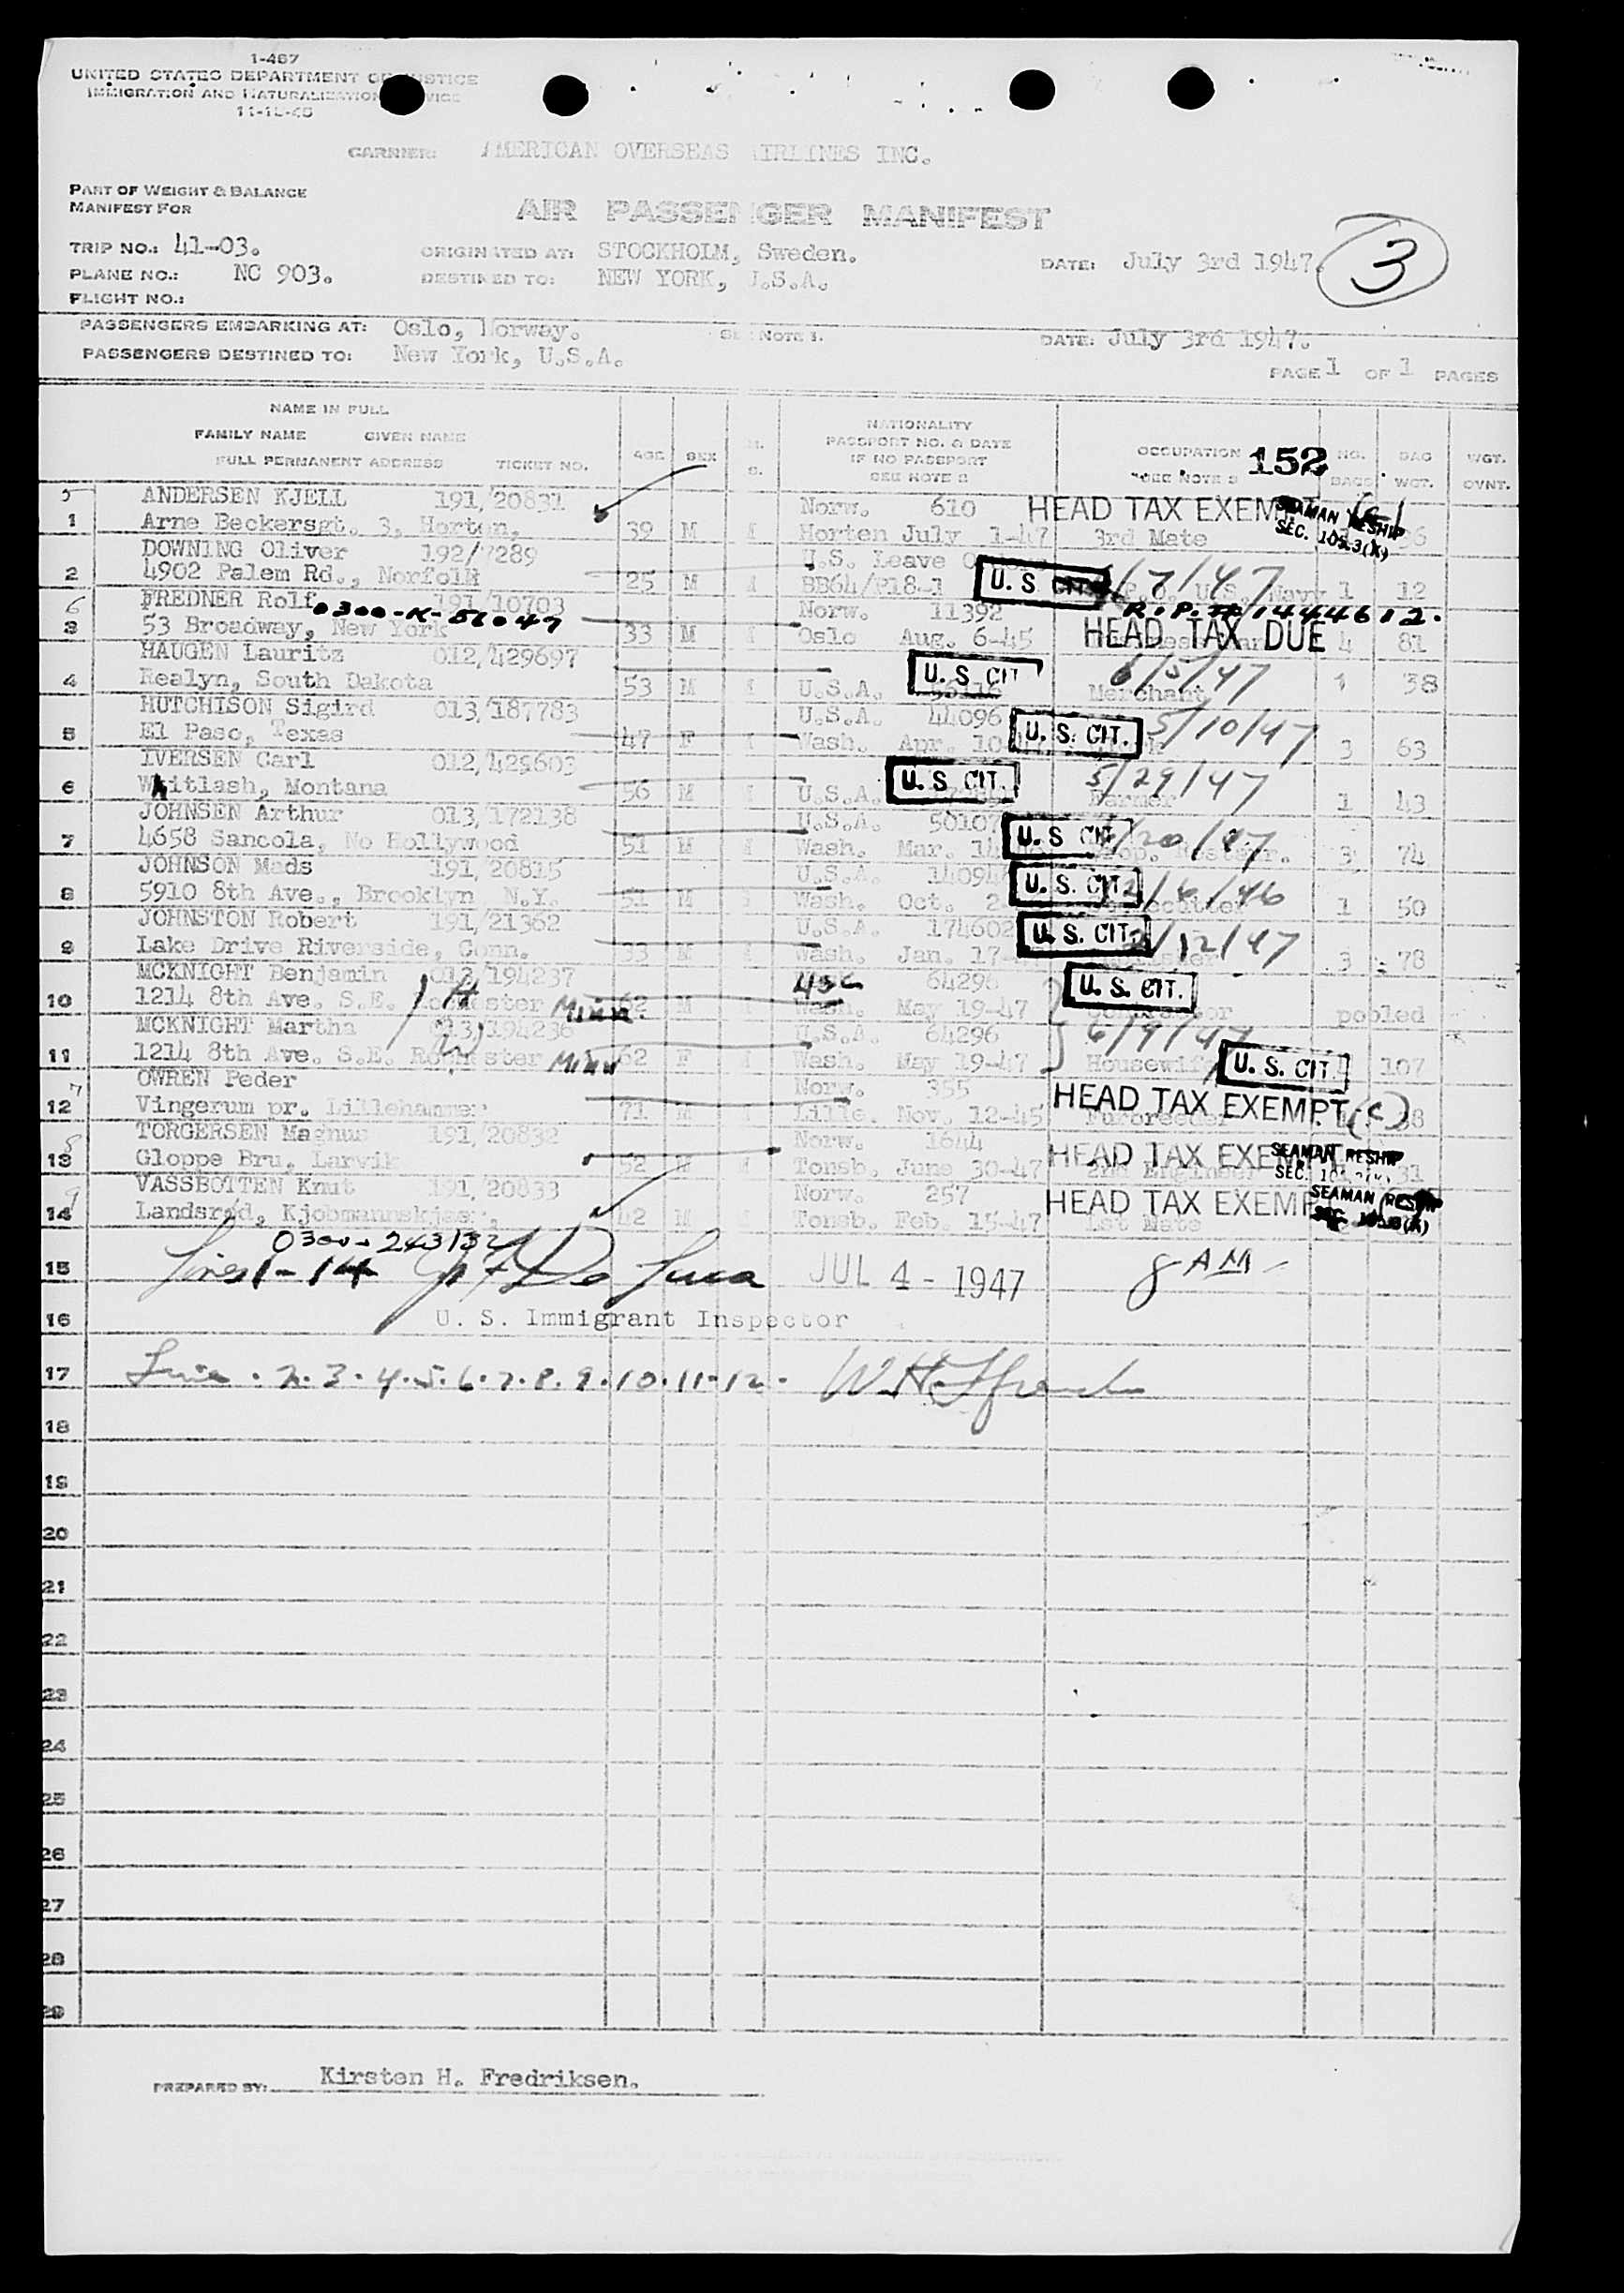 1-467
UNITED STATES DEPARTMENT OF JUSTICE
IMMIGRATION AND NATURALIZATION SERVICE
CARRIER: AMERICAN OVERSEAS AIRLINES INC.
PART OF WEIGHT & BALANCE
MANIFEST FOR
AIR PASSENGER MANIFEST
TRIP NO.: 41-03. ORIGINATED AT: STOCKHOLM, Sweden. DATE: July 3rd 1947. 3
PLANE NO.: NC 903. DESTINED TO: NEW YORK, U.S.A.
FLIGHT NO.:
PASSENGERS EMBARKING AT: Oslo, Norway. SEE NOTE 1. DATE: July 3rd 1947.
PASSENGERS DESTINED TO: New York, U.S.A.
PAGE 1 OF 1 PAGES
NAME IN FULL
FAMILY NAME GIVEN NAME
FULL PERMANENT ADDRESS TICKET NO.
AGE SEX M. S.
NATIONALITY
PASSPORT NO. & DATE
IF NO PASSPORT
SEE NOTE 2
OCCUPATION 152
SEE NOTE 3
NO. BAGS BAG WGT. WGT. OVNT.
5 ANDERSEN KJELL 191/20831 Norw. 610 HEAD TAX EXEMPT SEAMAN RESHIP
1 Arne Beckersgt. 3, Horten, 39 M M Horten July 1-47 3rd Mate SEC. 105.3(K) 36
DOWNING Oliver 192/7289 U.S. Leave U. S. CIT. /7/47
2 4902 Palem Rd., Norfolk 25 M M BB64/P18-1 U.S. Navy 1 12
6 FREDNER Rolf 0300-K-51047 191/10703 Norw. 11392 R.P.# 1444612.
3 53 Broadway, New York 33 M M Oslo Aug. 6-45 HEAD TAX DUE 4 81
HAUGEN Lauritz 012/429697 U. S. CIT 6/5/47
4 Realyn, South Dakota 53 M M U.S.A. Merchant 1 38
HUTCHISON Sigird 013/187783 U.S.A. 44096 U. S. CIT. 5/10/47
5 El Paso, Texas 47 F M Wash. Apr. 10-47 3 63
IVERSEN Carl 012/429603 U. S. CIT. 5/29/47
6 Whitlash, Montana 56 M M U.S.A. Farmer 1 43
JOHNSEN Arthur 013/172138 U.S.A. 50107 U. S. CIT. /20/47
7 4658 Sancola, No Hollywood 51 M M Wash. Mar. 14 Prop. Restaur. 3 74
JOHNSON Mads 191/20815 U.S.A. U. S. CIT. 12/6/46
8 5910 8th Ave., Brooklyn N.Y. 51 M M Wash. Oct. 2 1 50
JOHNSTON Robert 191/21362 U.S.A. 174602 U. S. CIT. /12/47
9 Lake Drive Riverside, Conn. 33 M M Wash. Jan. 17 3 78
MCKNIGHT Benjamin 013/194237 USC 64296 U. S. CIT.
10 1214 8th Ave. S.E. Rochester Minn. 62 M M Wash. May 19-47 Contractor pooled
MCKNIGHT Martha 013/194236 U.S.A. 64296 6/9/47
11 1214 8th Ave. S.E. Rochester Minn 62 F M Wash. May 19-47 Housewife U. S. CIT. 107
7 OWREN Peder Norw. 355 HEAD TAX EXEMPT (c)
12 Vingerum pr. Lillehammer 71 M M Lille. Nov. 12-45 Furbreeder 38
8 TORGERSEN Magnus 191/20832 Norw. 1644 HEAD TAX EXEMPT SEAMAN RESHIP
13 Gloppe Bru, Larvik 52 M M Tonsb. June 30-47 2nd Engineer SEC. 105.3(K) 31
9 VASSBOTTEN Knut 191/20833 Norw. 257 HEAD TAX EXEMPT SEAMAN RESHIP
14 Landsrød, Kjobmannskjaer, 42 M M Tonsb. Feb. 15-47 1st Mate SEC. 105.3(K)
0300-243132
15 Lines 1-14 De Luca JUL 4 - 1947 8 AM
16 U. S. Immigrant Inspector
17 Line . 2.3.4.5.6.7.8.9.10.11.12.
18
19
20
21
22
23
24
25
26
27
28
29
PREPARED BY: Kirsten H. Fredriksen.